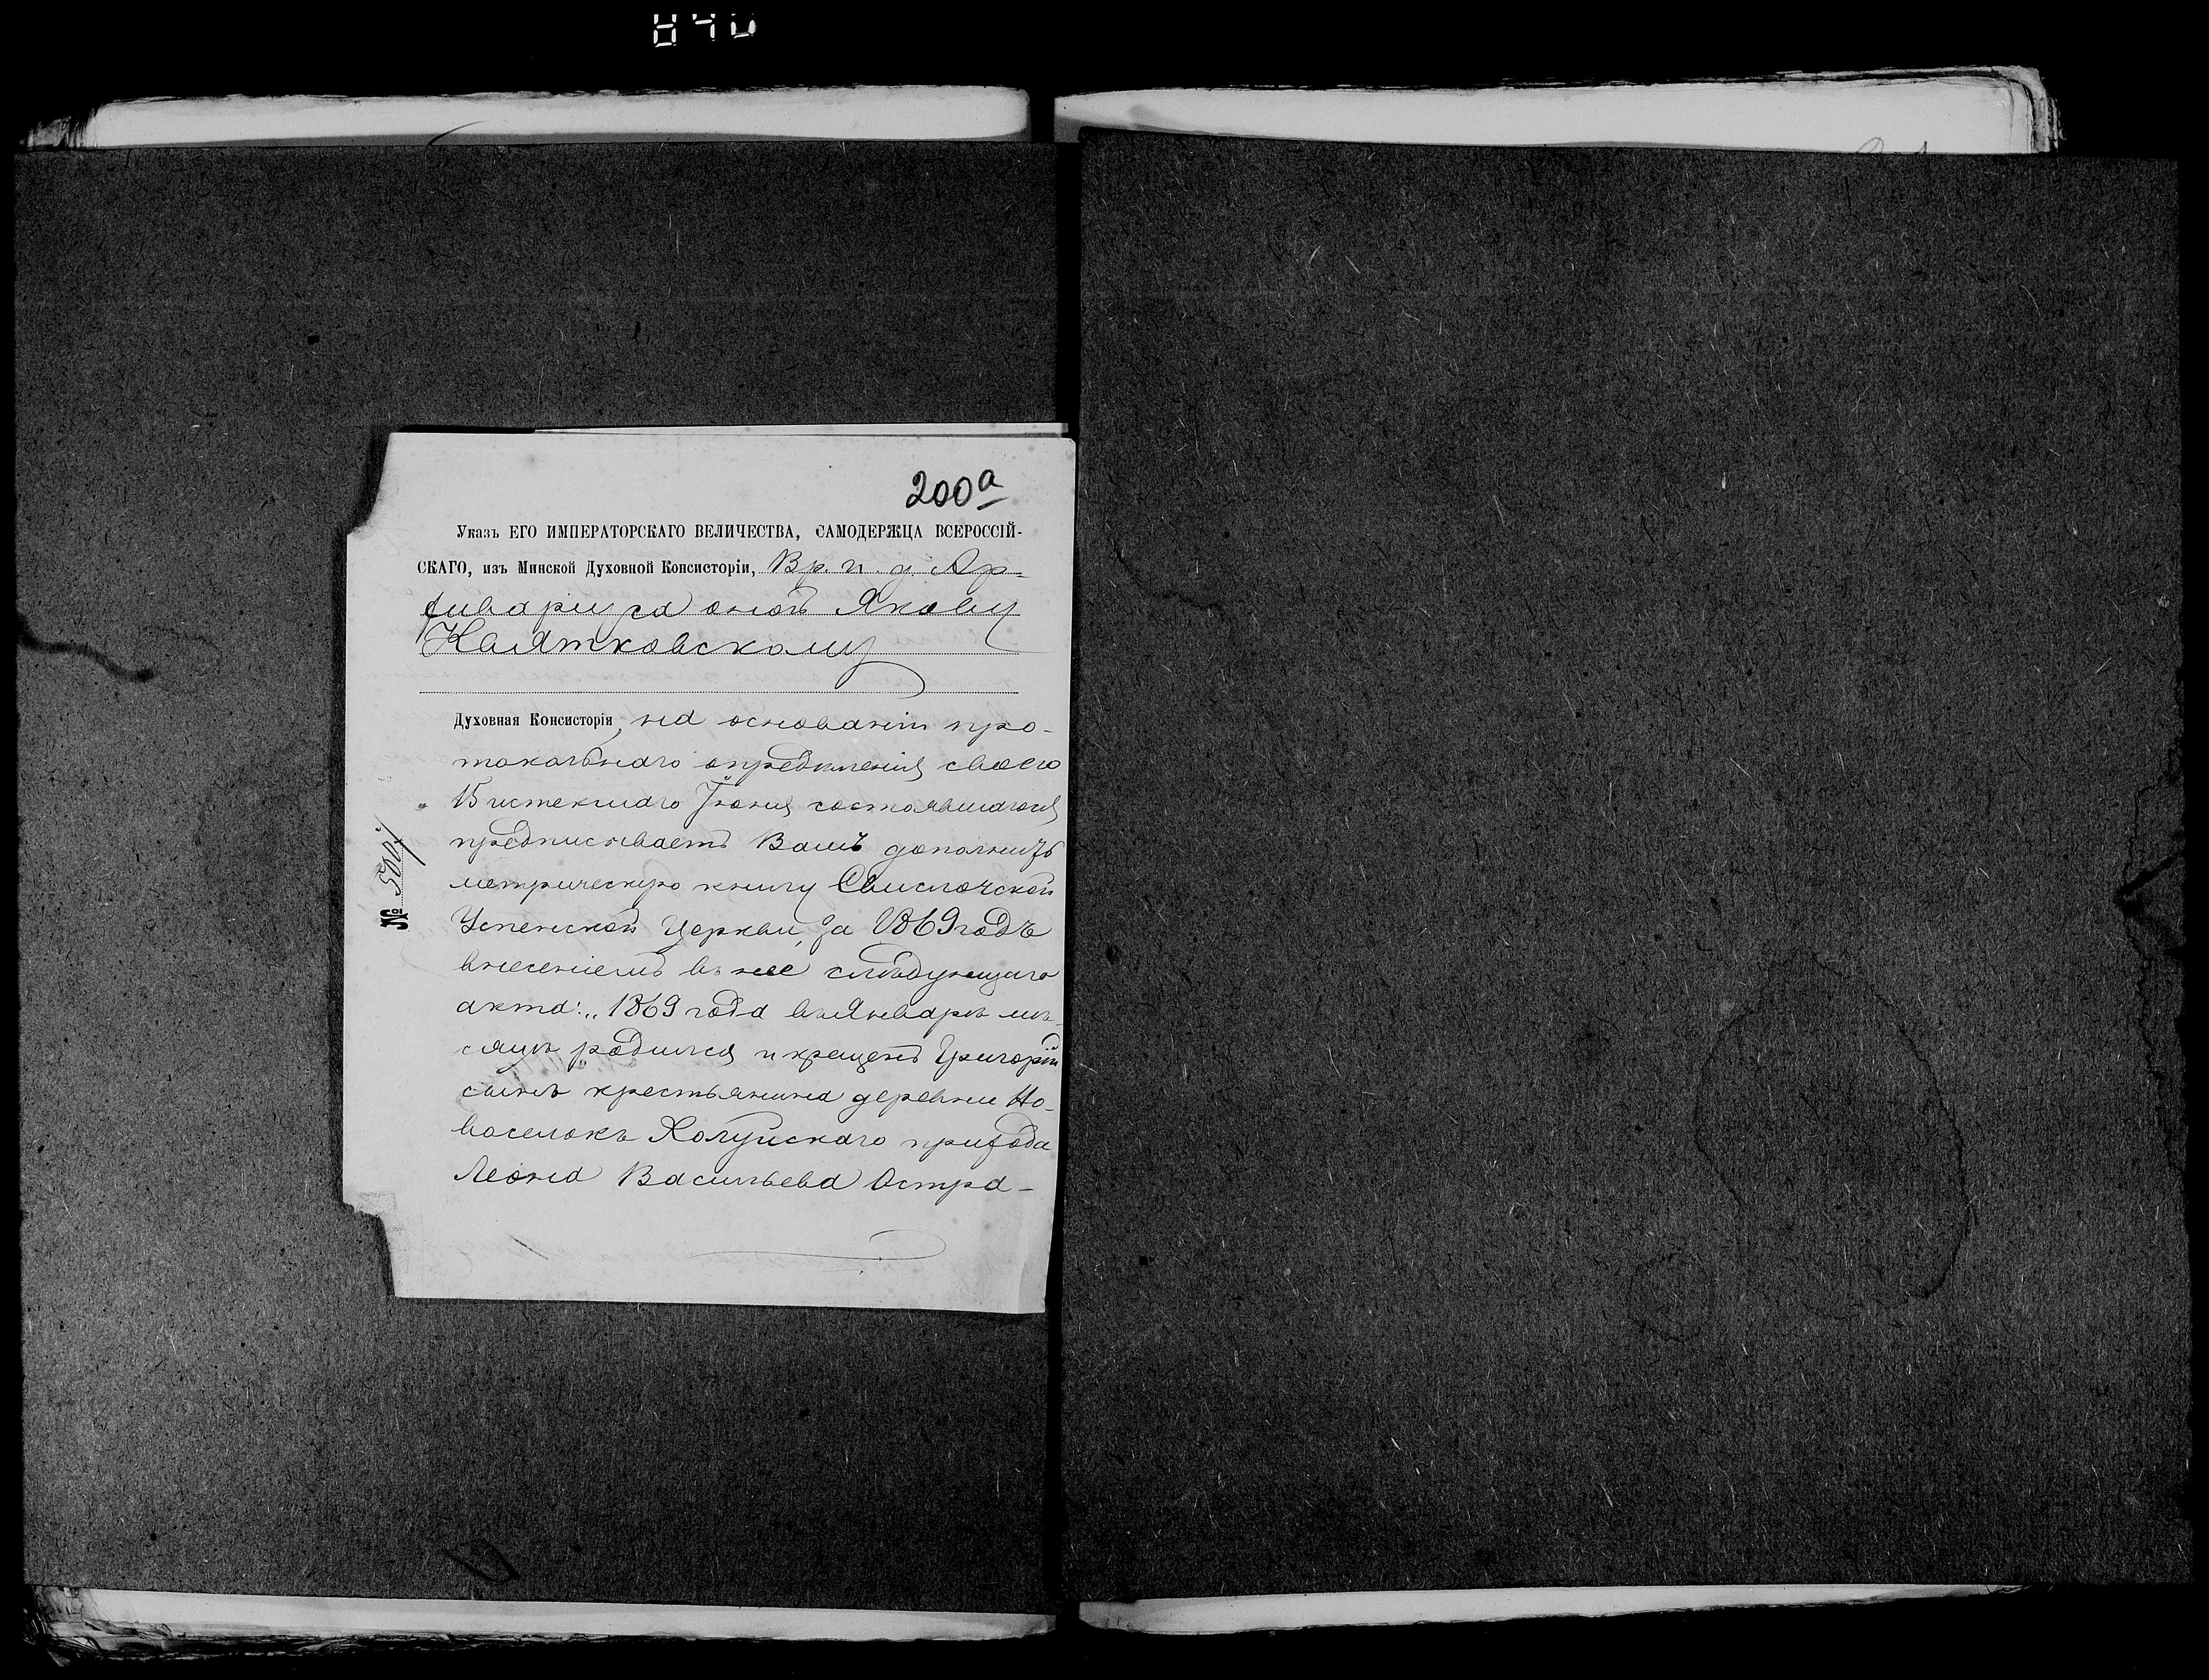 200а
Указъ ЕГО ИМПЕРАТОРСКАГО ВЕЛИЧЕСТВА, САМОДЕРЖЦА ВСЕРОССІЙ-
СКАГО, изъ Минской Духовной Консисторіи, Вр. и. д. Ар-
хиваріуса оной Якову
Квятковскому
Духовная Консисторія, на основаніи про-
токольнаго опредѣленія своего
15 истекшаго Іюня состоявшагося
предписываетъ Вамъ дополнить
метрическую книгу Свислочской
Успенской Церкви, за 1869 годъ
внесеніемъ въ нее слѣдующаго
акта: „1869 года въ Январѣ мѣ-
сяцѣ родился и крещенъ Григорій
сынъ крестьянина деревни Но-
воселокъ Холуйскаго прихода
Леона Васильева Остра-
№